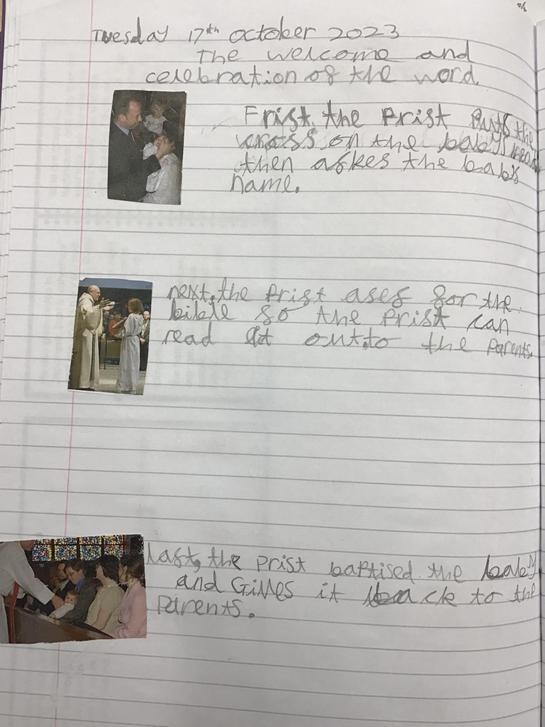 Tuesday 17th october 2023
The welcome and
celebration of the word.
Frist, the Prist puts the
cross on the babys head
then askes the babys
name.
next, the Prist ases for the
bible so the Prist can
read it out to the Parents.
last, the prist baptised the baby
and Gives it back to the
Parents.